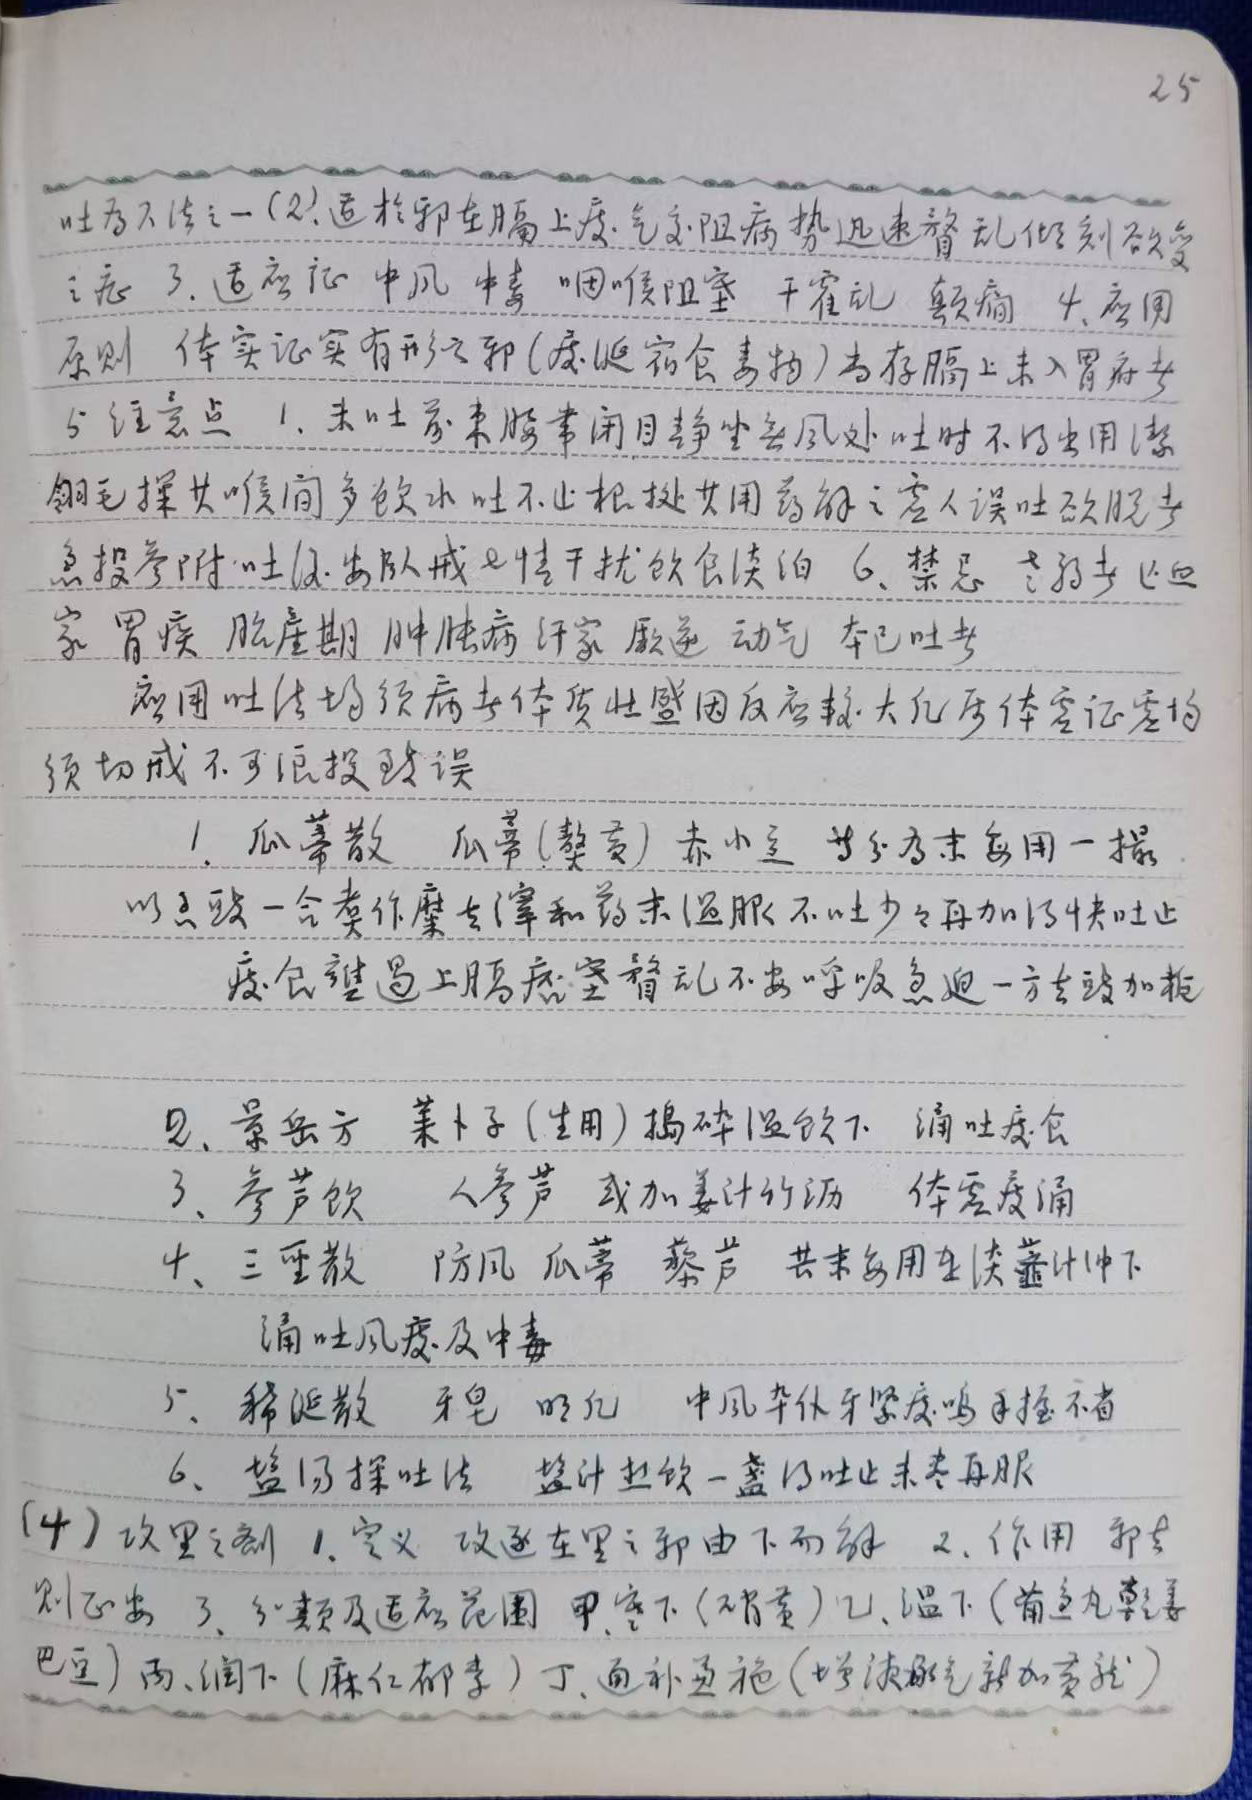 25
吐为八法之一(2、适於邪在膈上痰气交阻病势迅速瞀乱倾刻欲变
之症 3、适应证 中风 中毒 咽喉阻塞 干霍乱 颠痫 4、应用
原则 体实证实有形之邪(痰涎宿食毒物)尚存膈上未入胃府者
5 注意点 1、未吐前束腰带闭目静坐无风处吐时不得出用洁
翎毛探其喉间多饮水吐不止根据其用药解之虚人误吐欲脱者
急投参附 吐后安卧戒七情干扰饮食淡泊 6、禁忌 老弱者 亡血
家 胃疾 胎产期 肿胀病 汗家 厥逆 动气 本已吐者
应用吐法均须病者体质壮盛因反应较大凡属体虚证虚均
须切戒不可浪投致误
1、瓜蒂散 瓜蒂(熬黄)赤小豆 等分为末每用一撮
以香豉一合煮作糜去滓和药末温服不吐少々再加得快吐止
痰食壅遏上膈痞塞瞀乱不安呼吸急迫一方去豉加栀
2、景岳方 莱卜子(生用)捣碎温饮下 涌吐痰食
3、参芦饮 人参芦 或加姜汁竹沥 体虚痰涌
4、三圣散 防风 瓜蒂 藜芦 共末每用 淡虀汁冲下
涌吐风痰及中毒
5、稀涎散 牙皂 明凡 中风卒仆牙紧痰鸣手握不省
6、盐汤探吐法 盐汁热饮一盏得吐止未尽再服
(4)攻里之剂 1、定义 攻逐在里之邪由下而解 2、作用 邪去
则正安 3、分类及适应范围 甲、寒下(硝黄)乙、温下(备急丸乾姜
巴豆)丙、润下(麻仁郁李)丁、 补 施(增液承气新加黄龙)